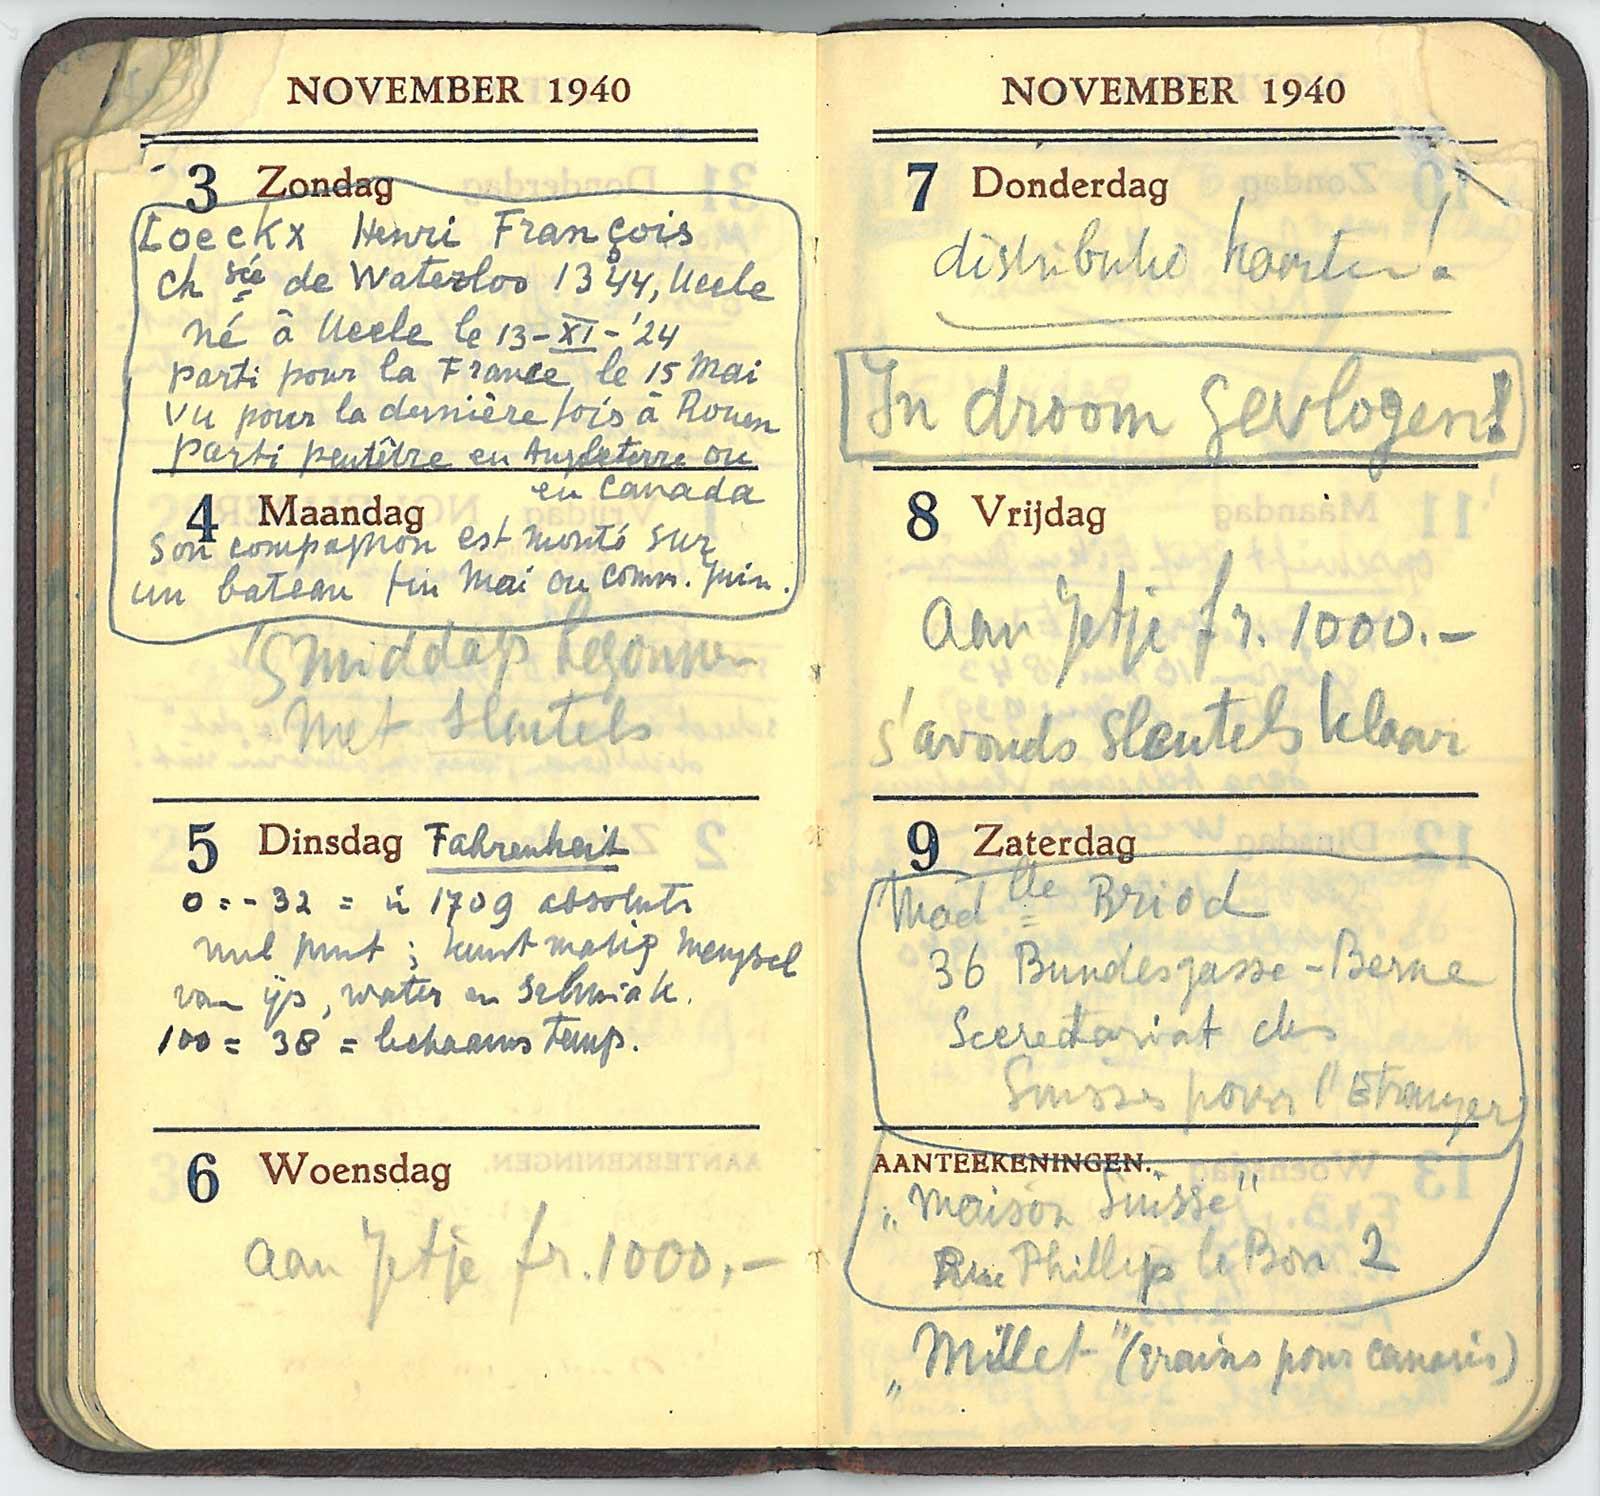 NOVEMBER 1940
3 Zondag
Loeckx Henri François
Ch sée de Waterloo 1344, Uccle
né à Uccle le 13-XI-'24
parti pour la France le 15 Mai
vu pour la dernière fois à Rouen
parti peutêtre en Angleterre ou
en Canada
4 Maandag
Son compagnon est monté sur
un bateau fin Mai ou comm. Juin.
's middags begonnen
met sleutels
5 Dinsdag Fahrenheit
0 = - 32 = in 1709 absolute
nul punt; kunstmatig mengsel
van ijs, water en Salmiak.
100 = 38 = lichaams temp.
6 Woensdag
aan Jetje fr. 1000,-
NOVEMBER 1940
7 Donderdag
distributie kaarten!
In droom gevlogen!
8 Vrijdag
aan Jetje fr. 1000.-
s'avonds sleutels klaar
9 Zaterdag
Mad lle Briod
36 Bundesgasse - Berne
Secretariat des
Suisses pour l'Etranger
AANTEEKENINGEN.
„Maison Suisse"
Rue Phillip le Bon 2
„Millet" (grains pour canaris)